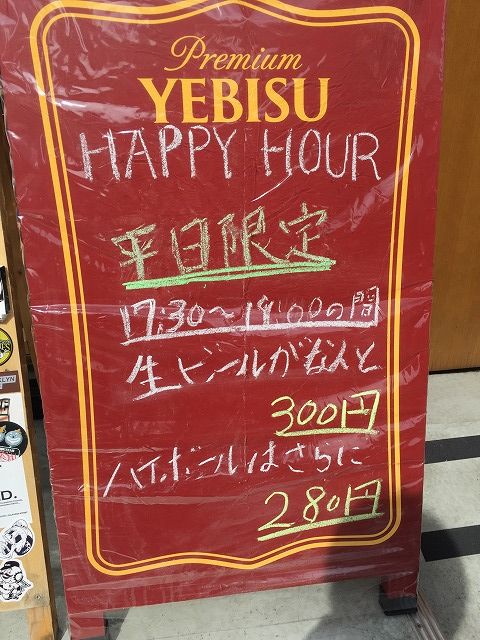 Premium
YEBISU
HAPPY HOUR
平日限定
17:30〜19:00の間
生ビールがなんと
300円
ハイボールはさらに
280円